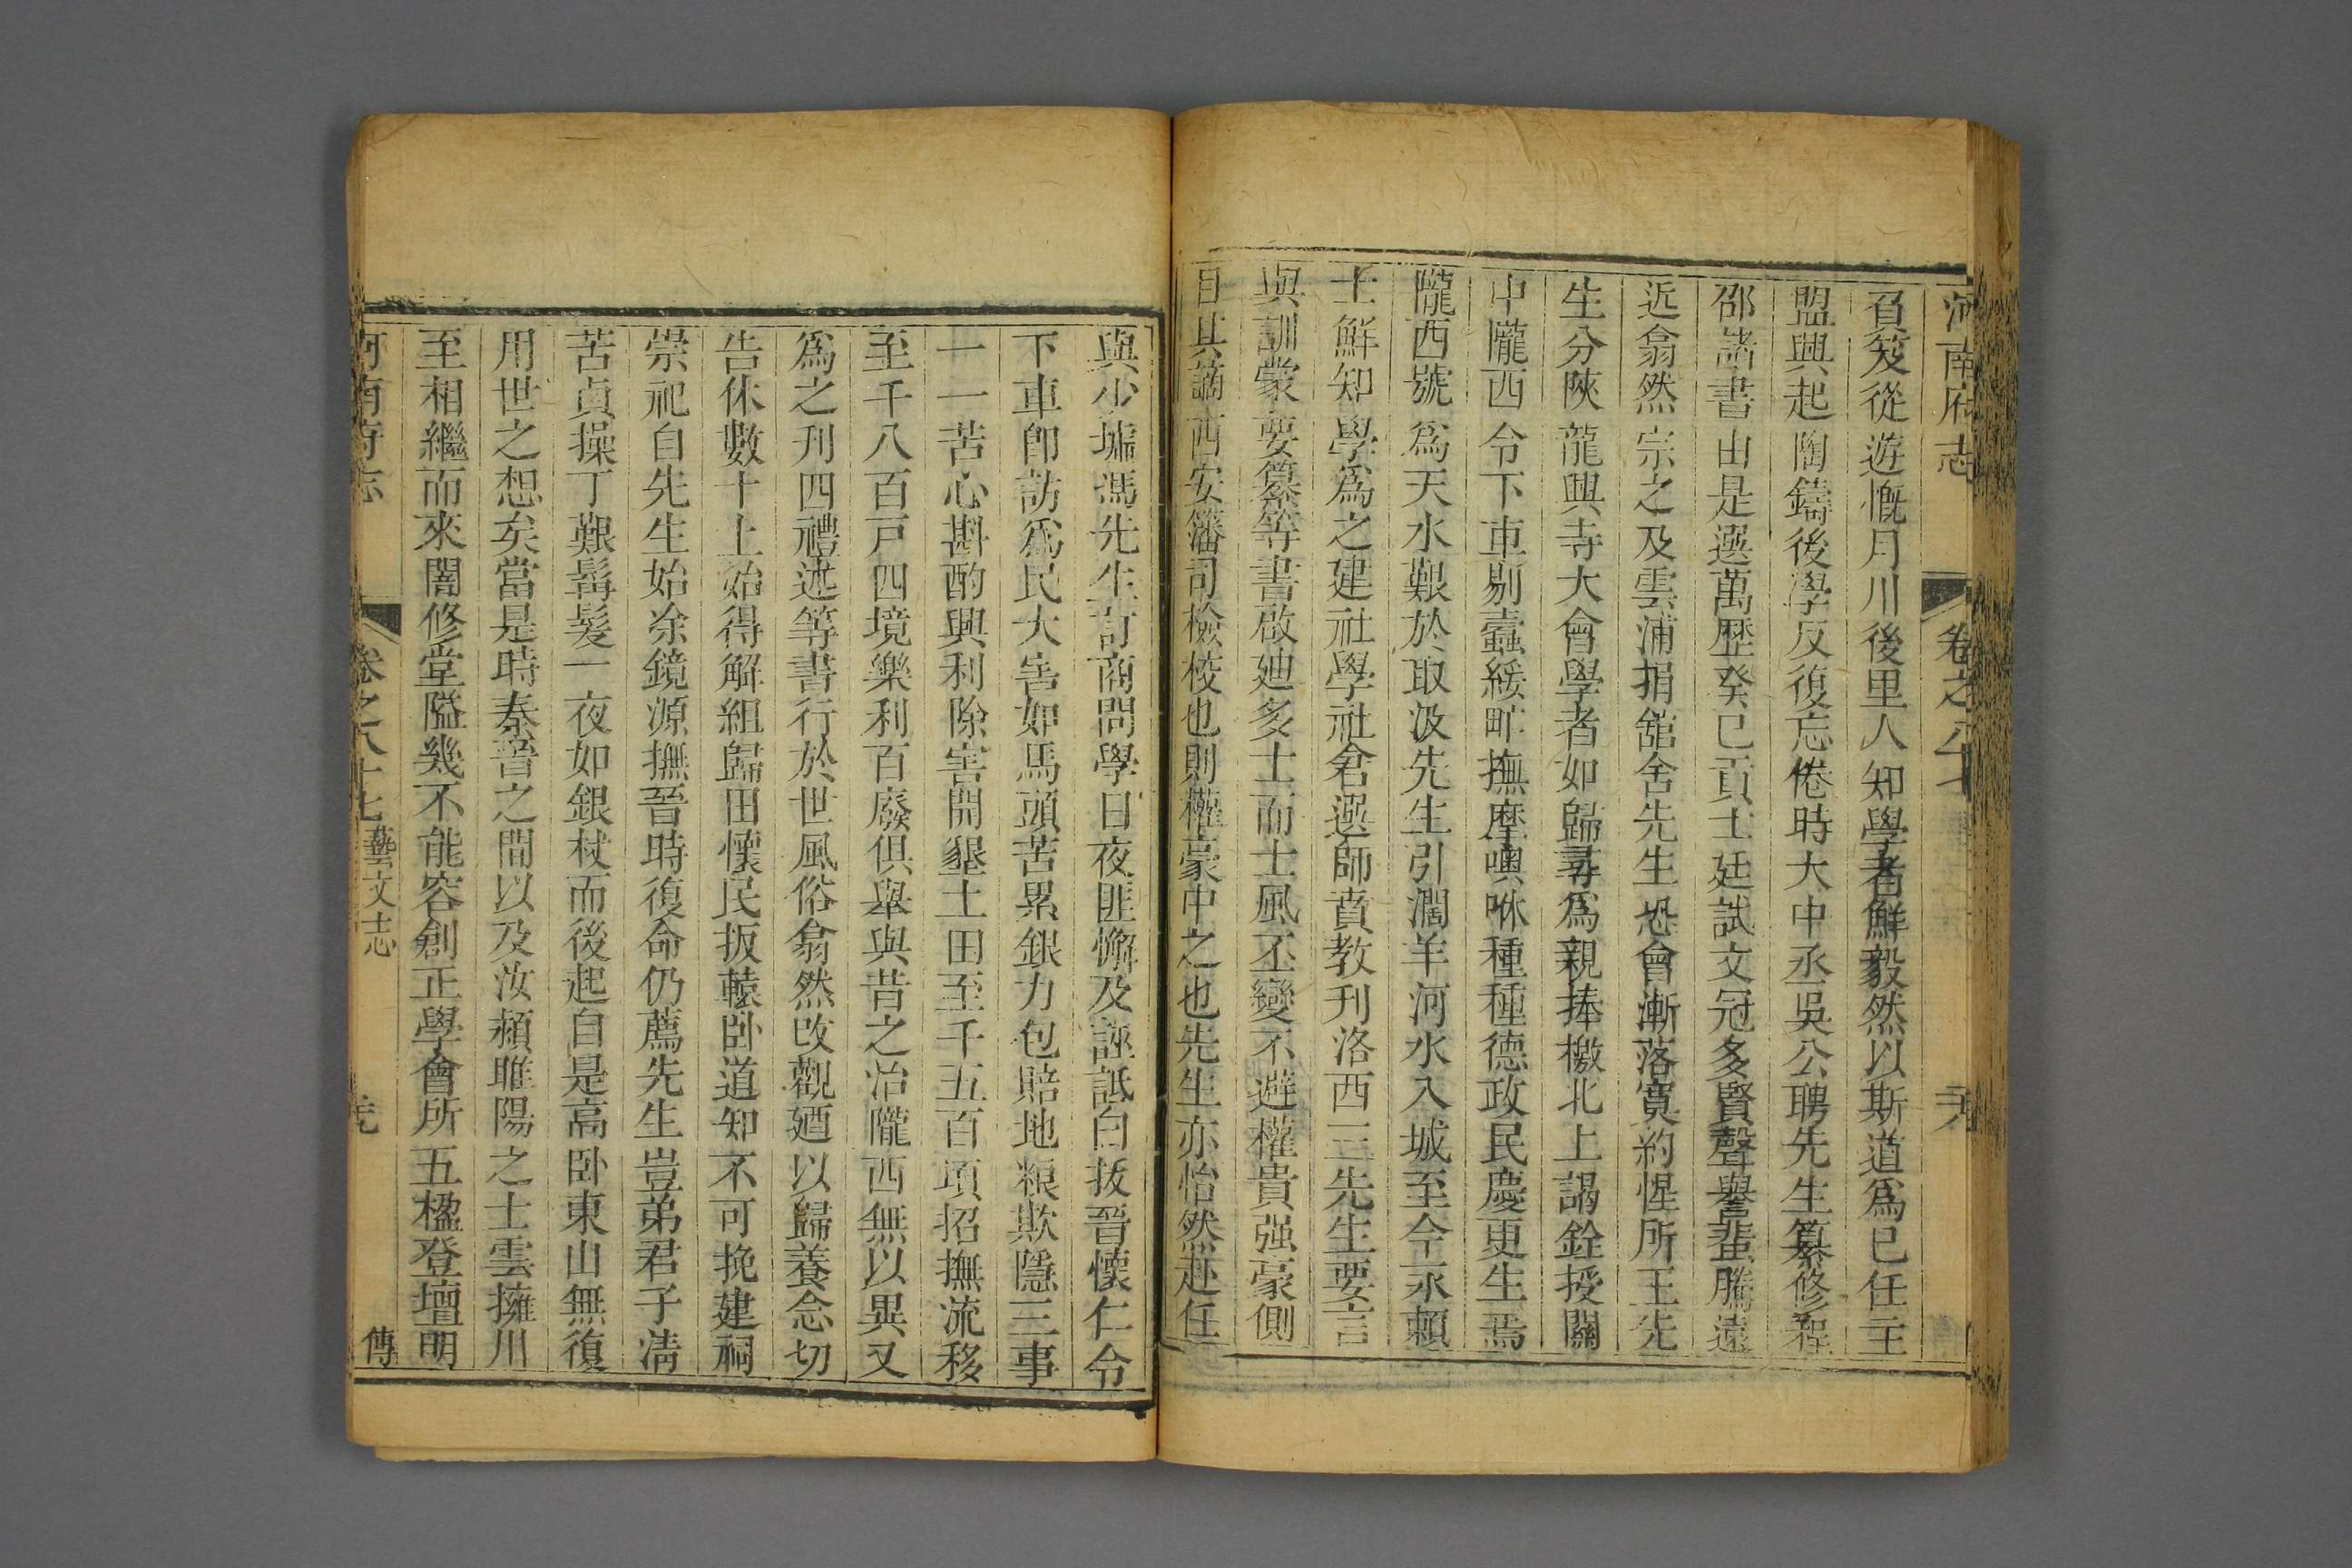 河南府志 卷之八十七
負笈從遊慨月川後里人知學者鮮毅然以斯道爲已任主
盟興起陶鑄後學反復忘倦時大中丞吳公聘先生纂修程
邵諸書由是選萬歷癸巳貢士廷試文冠多賢聲譽蜚騰遠
近翕然宗之及雲浦捐舘舍先生恐會漸落寞約惺所王先
生分陝龍興寺大會學者如歸尋爲親捧檄北上謁銓授關
中隴西令下車剔蠹綏甿撫摩噢咻種種德政民慶更生焉
隴西號爲天水艱於取汲先生引濶羊河水入城至今永賴
士鮮知學爲之建社學社倉選師賁教刊洛西三先生要言
與訓蒙要纂等書啟廸多士而士風丕變不避權貴强豪側
目其謫西安藩司檢校也則權豪中之也先生亦怡然赴任
與少墟馮先生訂商問學日夜匪懈及誣詆白拔晉懷仁令
下車卽訪爲民大害如馬頭苦累銀力包賠地粮欺隱三事
一一苦心斟酌興利除害開墾土田至千五百項招撫流移
至千八百戸四境樂利百廢俱舉與昔之治隴西無以異又
爲之刋四禮述等書行於世風俗翕然改觀廼以歸養念切
告休數十上始得解組歸田懷民扳轅卧道知不可挽建祠
崇祀自先生始凃鏡源撫晉時復命仍薦先生豈弟君子淸
苦貞操丁艱髯髮一夜如銀杖而後起自是高卧東山無復
用世之想矣當是時秦晉之間以及汝潁睢陽之士雲擁川
至相繼而來闇修堂隘幾不能容創正學會所五楹登壇明
河南府志 卷之八十七 藝文志 傳